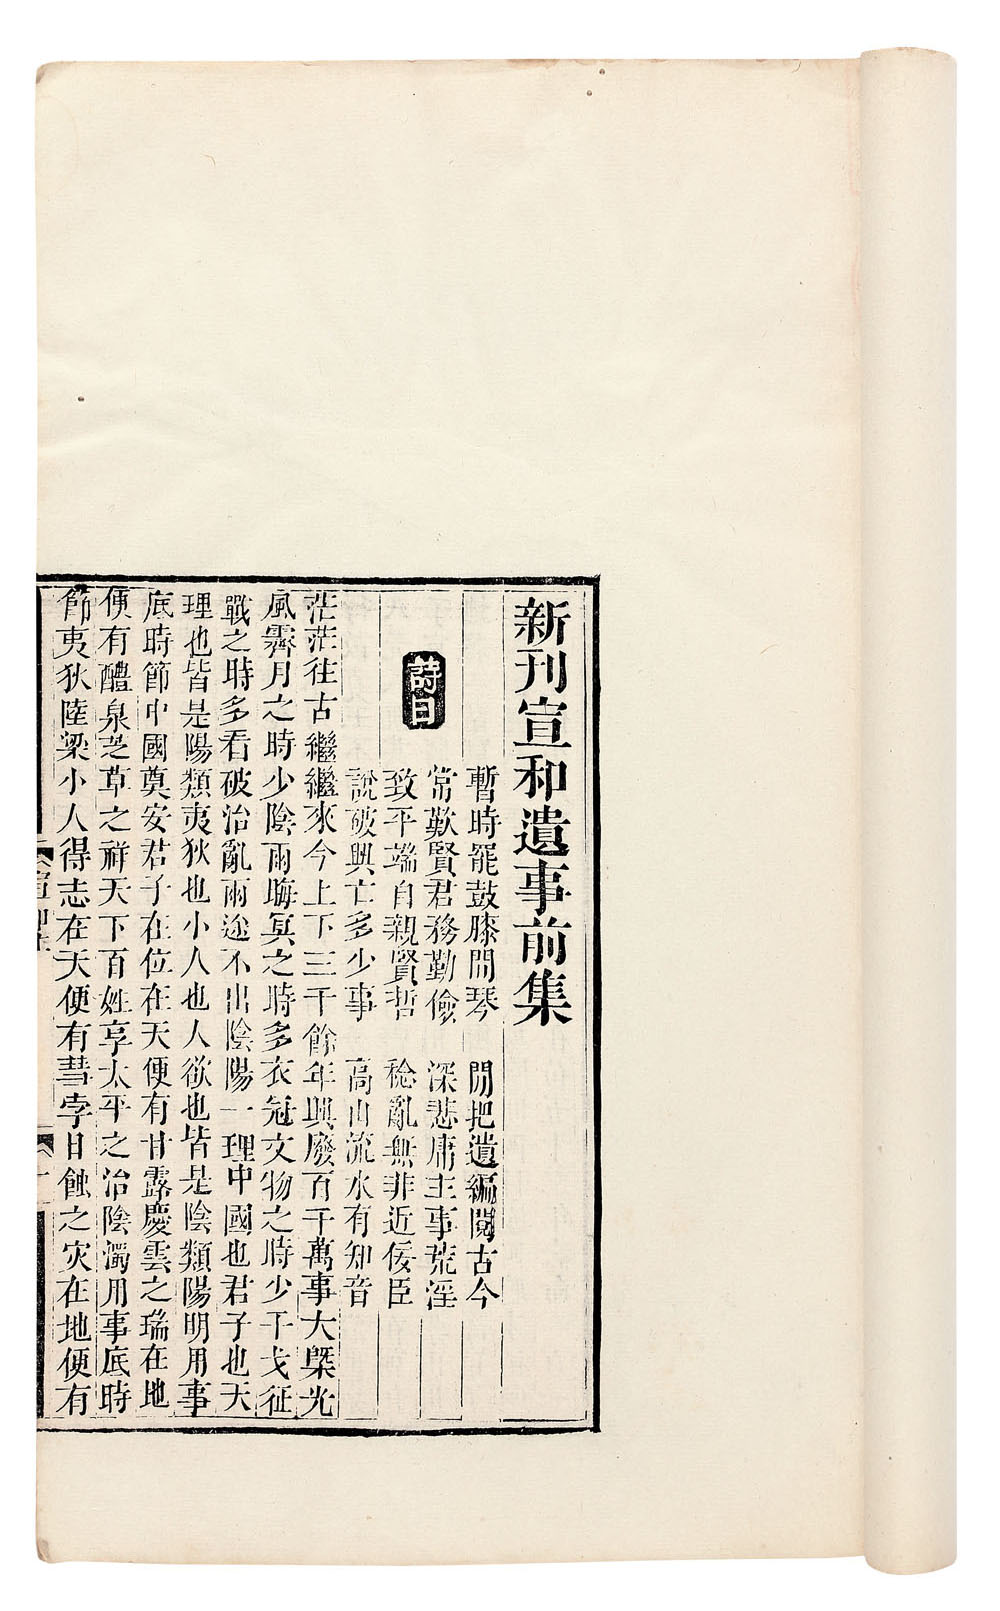 新刊宣和遺事前集
詩曰
暫時罷鼓膝間琴　閒把遺編閱古今
常歎賢君務勤儉　深悲庸主事荒淫
致平端自親賢哲　稔亂無非近佞臣
說破興亡多少事　高山流水有知音
茫茫往古繼繼來今上下三千餘年興廢百千萬事大槩光
風霽月之時少陰雨晦冥之時多衣冠文物之時少干戈征
戰之時多看破治亂兩途不出陰陽一理中國也君子也天
理也皆是陽類夷狄也小人也人欲也皆是陰類陽明用事
底時節中國奠安君子在位在天便有甘露慶雲之瑞在地
便有醴泉芝草之祥天下百姓享太平之治陰濁用事底時
節夷狄陸梁小人得志在天便有彗孛日蝕之灾在地便有